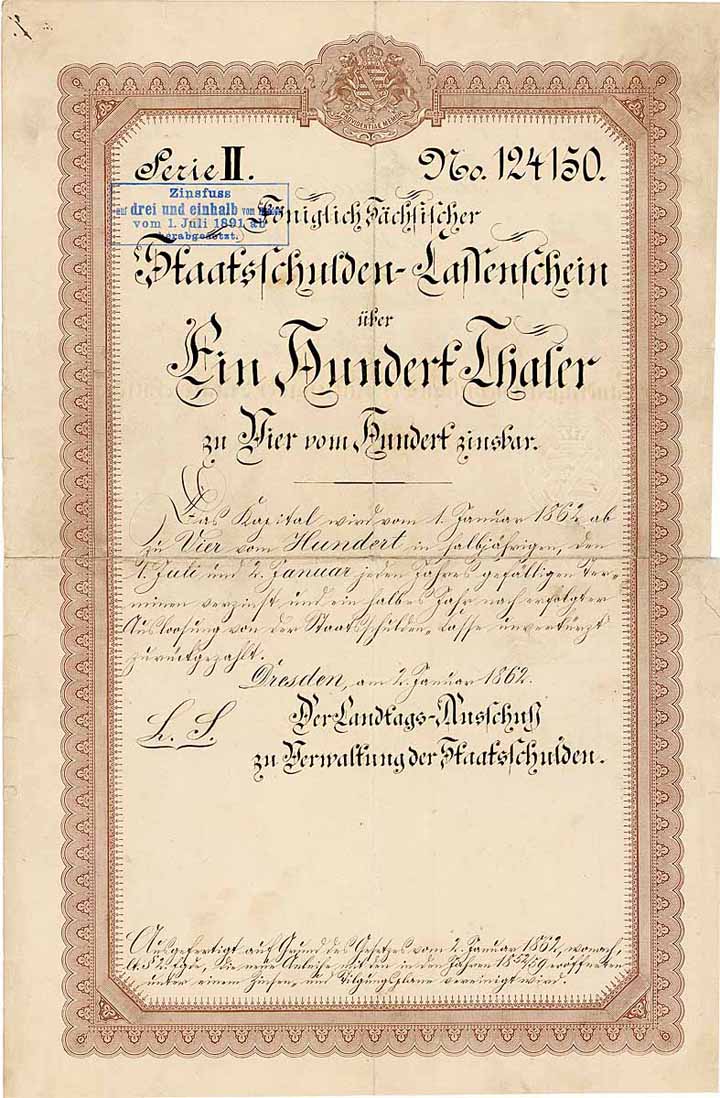 PROVIDENTIAE MEMOR
Serie II. No. 124150.
Zinsfuss
auf drei und einhalb vom
vom 1. Juli 1891 ab
herabgesetzt.
Königlich Sächsischer
Staatsschulden-Cassenschein
über
Ein Hundert Thaler
zu Vier vom Hundert zinsbar.
Das Kapital wird vom 1. Januar 1862 ab
zu Vier vom Hundert in halbjährigen, den
1. Juli und 2. Januar jeden Jahres gefälligen Ter-
minen verzinst und ein halbes Jahr nach erfolgter
Ausloosung von der Staatsschulden-Casse unverkürzt
zurückgezahlt.
Dresden, am 2. Januar 1862.
L. S.
Der Landtags-Ausschuß
zu Verwaltung der Staatsschulden.
Ausgefertigt auf Grund des Gesetzes vom 2. Januar 1862, wonach,
lt. § 2. die neue Anleihe mit den in den Jahren 1852/59 eröffneten
unter einem Zinsen- und Tilgungsplane vereinigt wird.